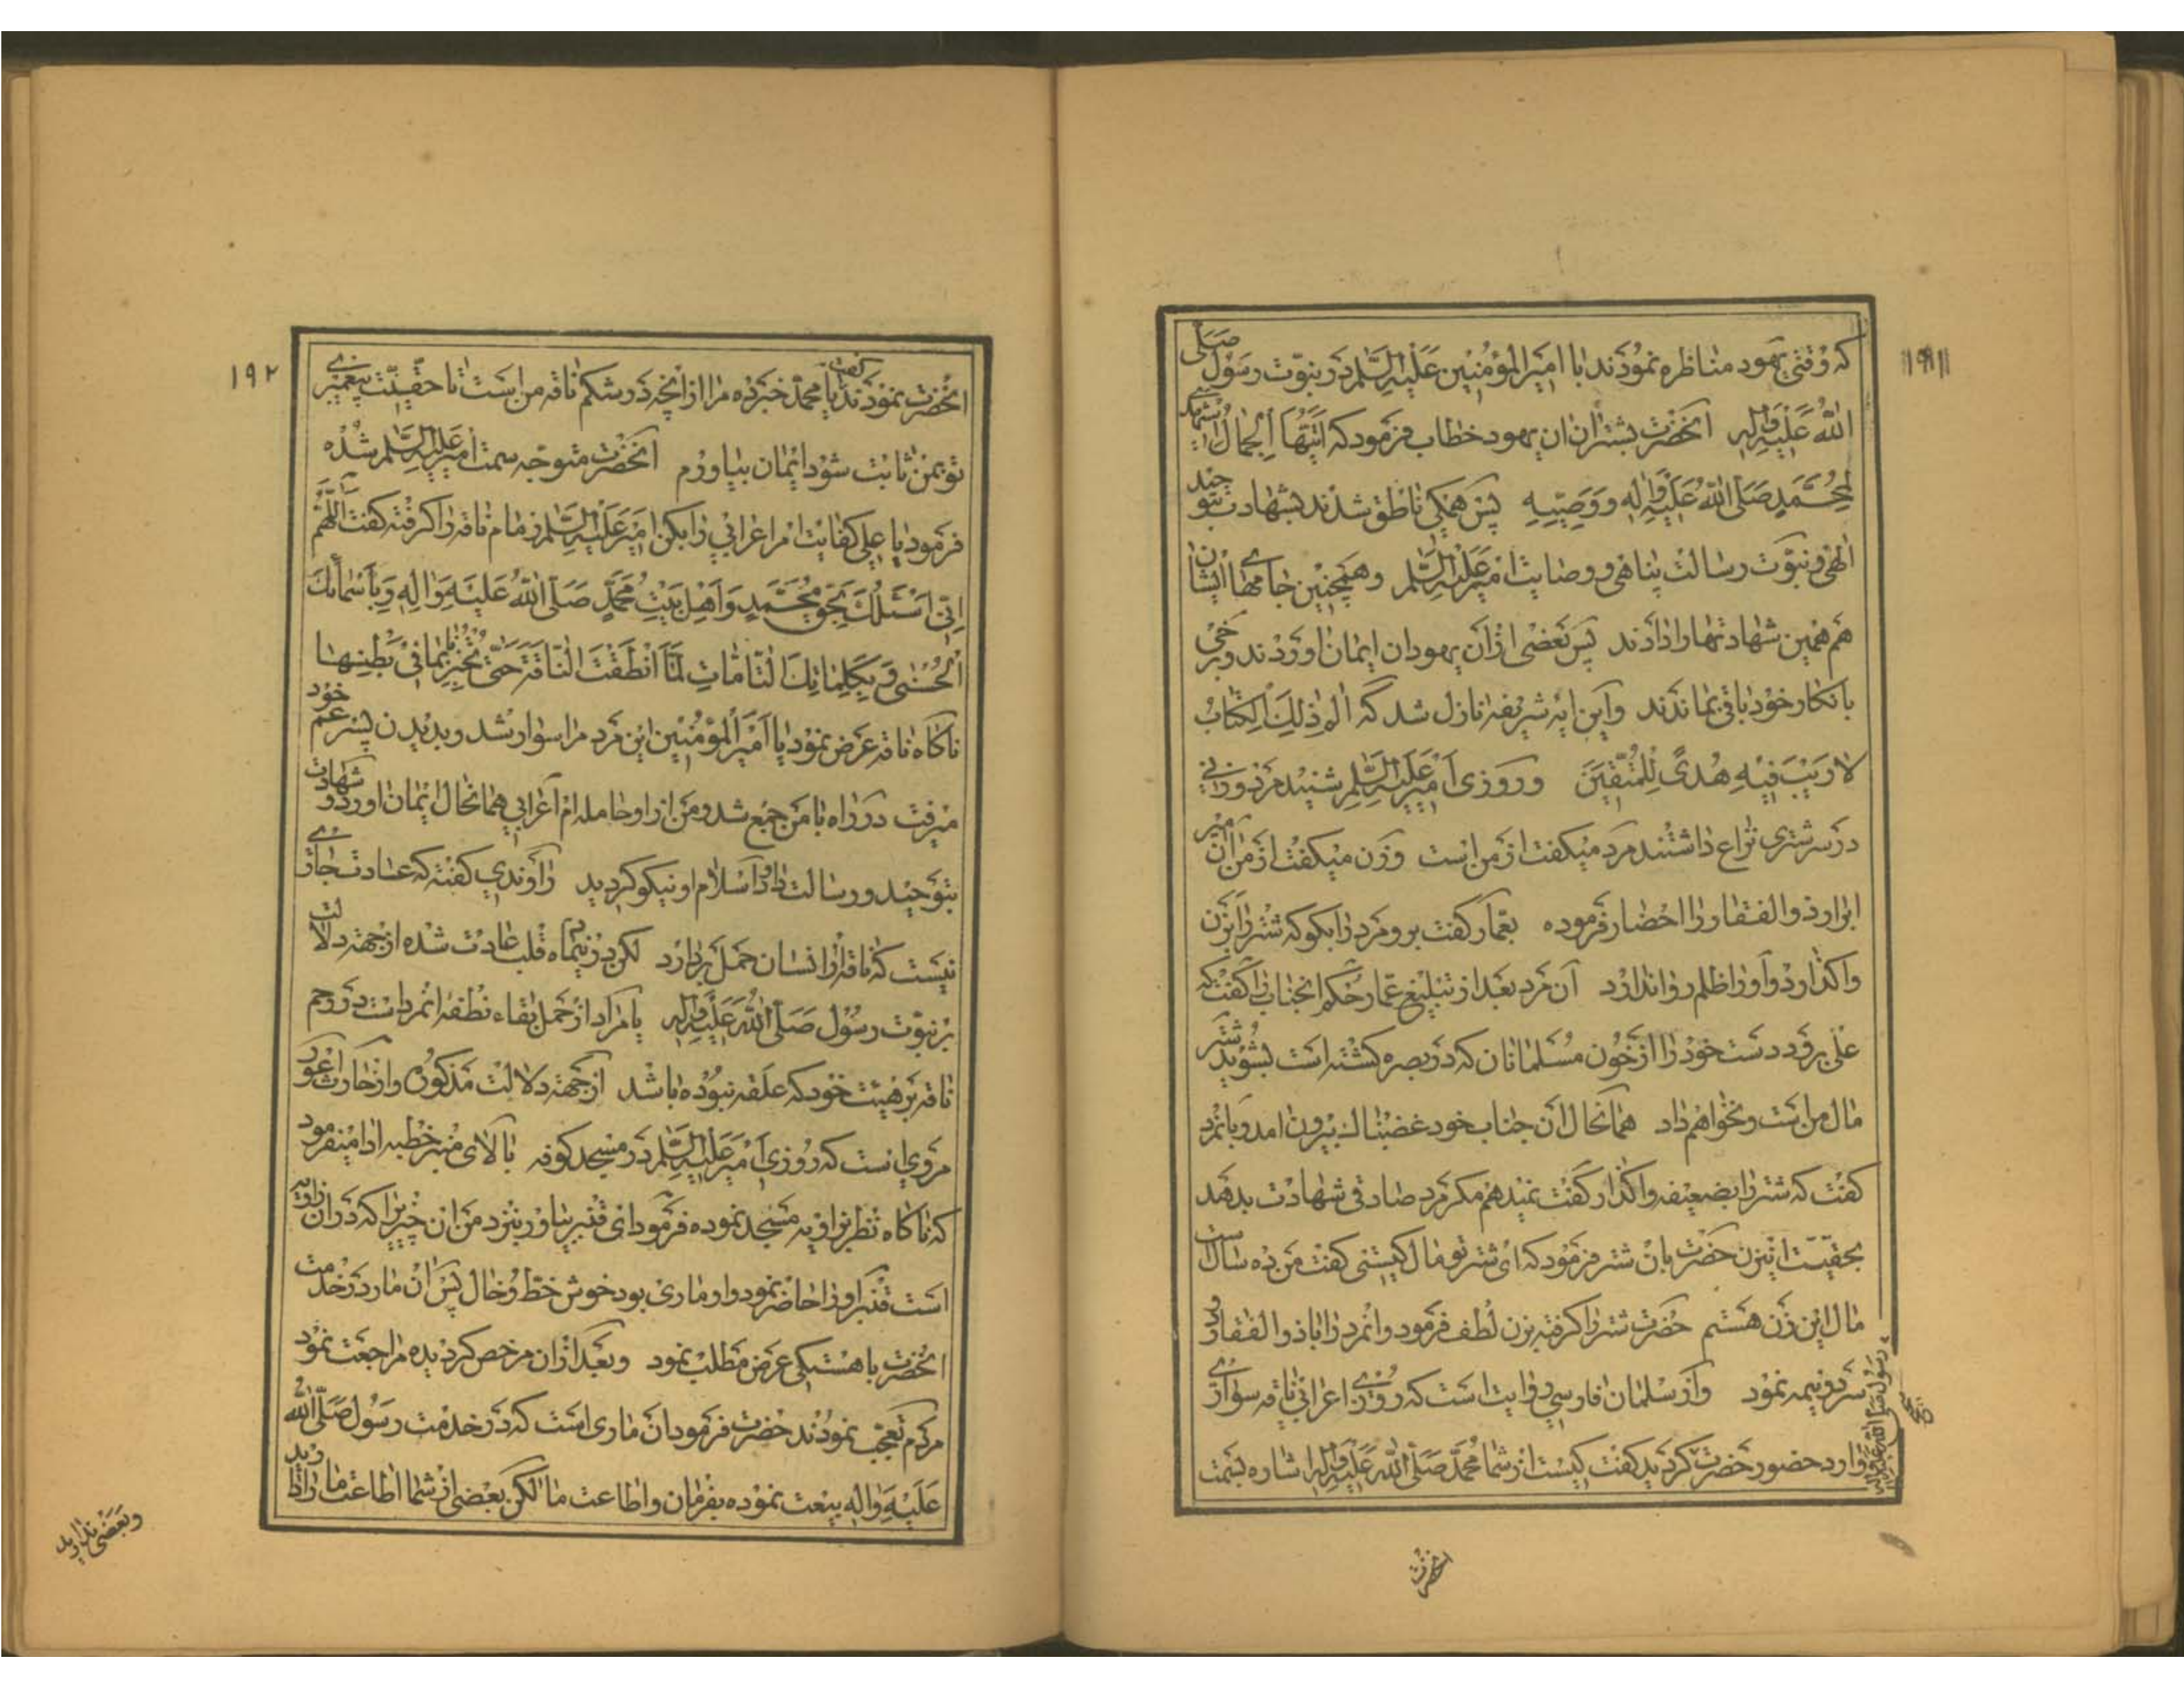 ۱۹۱
که وقتی یهود مناظره نمودند با امیر المؤمنین علیه السلم در نبوت رسول صلی
الله علیه واله انحضرت بشتران ان یهود خطاب فرمود که ایتها الجمال اشهدی
لمحمد صلی الله علیه واله ووصیه پس همکی ناطق شدند بشهادت بتوحید
الهی و نبوت رسالت پناهی ووصایت امیر علیه السلم وهمچنین جامهای ایشان
هم همین شهادتها را دادند پس بعضی ازان یهودان ایمان اوردند وبرخی
بانکار خود باقی بماندند واین ایه شریفه نازل شد که الم ذلك الکتاب
لا ریب فیه هدی للمتقین وروزی امیر علیه السلم شنید مرد وزنی
در سر شتری نزاع داشتند مرد میکفت از من است وزن میکفت از من ان میر
ابرار ذو الفقار را احضار فرموده بعمار کفت برو مرد را بکو که شتر را بزن
واکذارد واورا ظلم روا ندارد آن مرد بعد از تبلیغ عمار حکم انجناب را کفت که
علی برود دست خود را از خون مسلمانان که در بصره کشته است بشوید شتر
مال من است ونخواهم داد همانحال آن جناب خود غضبناك بیرون امد وبانمرد
کفت که شتر را بضعیفه واکذار کفت نمیدهم مکر مرد صادقی شهادت بدهد
بحقیت اینزن حضرت بان شتر فرمود که ای شتر تو مال کیستی کفت من ده سال است
مال این زن هستم حضرت شتر را کرفته بزن لطف فرمود وانمرد را با ذو الفقار
سر دو نیمه نمود واز سلمان فارسی روایت است که روزی اعرابی ناقه سواری
وارد حضور حضرت کردید کفت کیست از شما محمد صلی الله علیه واله اشاره بسمت
رسول صلی الله علیه واله
انحضرت
۱۹۲
انحضرت نمودند کفت یا محمد خبر ده مرا از آنچه در شکم ناقه من است تا حقیت پیغمبری
تو بمن ثابت شود ایمان بیاورم انحضرت متوجه سمت امیر علیه السلم شده
فرمود یا علی کفایت امر اعرابی را بکن امیر علیه السلم زمام ناقه را کرفته کفت اللهم
انی اسئلك بحق محمد واهل بیت محمد صلی الله علیه واله وباسمائك
الحسنی وبکلماتك التامات لما انطقت الناقة حتی تخبرنا بما فی بطنها
ناکاه ناقه عرض نمود یا امیر المؤمنین این مرد مرا سوار شد وبدیدن پسر عم خود
میرفت در راه با من جمع شد ومن از او حامله ام اعرابی همانحال ایمان اورد وشهادت
بتوحید ورسالت داد واسلام او نیکو کردید راوندی کفته که عادت جاری
نیست که ناقه را از انسان حمل بردارد لکن در نیماه قلب عادت شده از جهته دلالت
بر نبوت رسول صلی الله علیه واله یا مراد از حمل بقاء نطفه انمرد است در رحم
ناقه بر هیئت خود که علقه نبوده باشد از جهته دلالت مذکوره واز حارث اعور
مروی است که روزی امیر علیه السلم در مسجد کوفه بالای منبر خطبه ادا میفرمود
که ناکاه نظر بزاویه مسجد نموده فرمود ای قنبر بیاور بنزد من ان چیزیرا که در ان زاویه
است قنبر او را حاضر نمود واو ماری بود خوش خط وخال پس ان مار در خدمت
انحضرت باهستیکی عرض مطلب نمود وبعد ازان مرخص کردیده مراجعت نمود
مردم تعجب نمودند حضرت فرمود ان ماری است که در خدمت رسول صلی الله
علیه واله بیعت نموده بفرمان واطاعت ما لکن بعضی از شما اطاعت ما را دارید
وبعضی ندارید